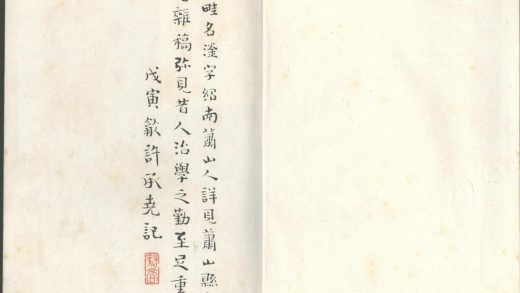 畦名瀅字紹南蕭山人詳見蕭山縣
雜稿弥見昔人治學之勤至足重
戊寅歙許承堯記